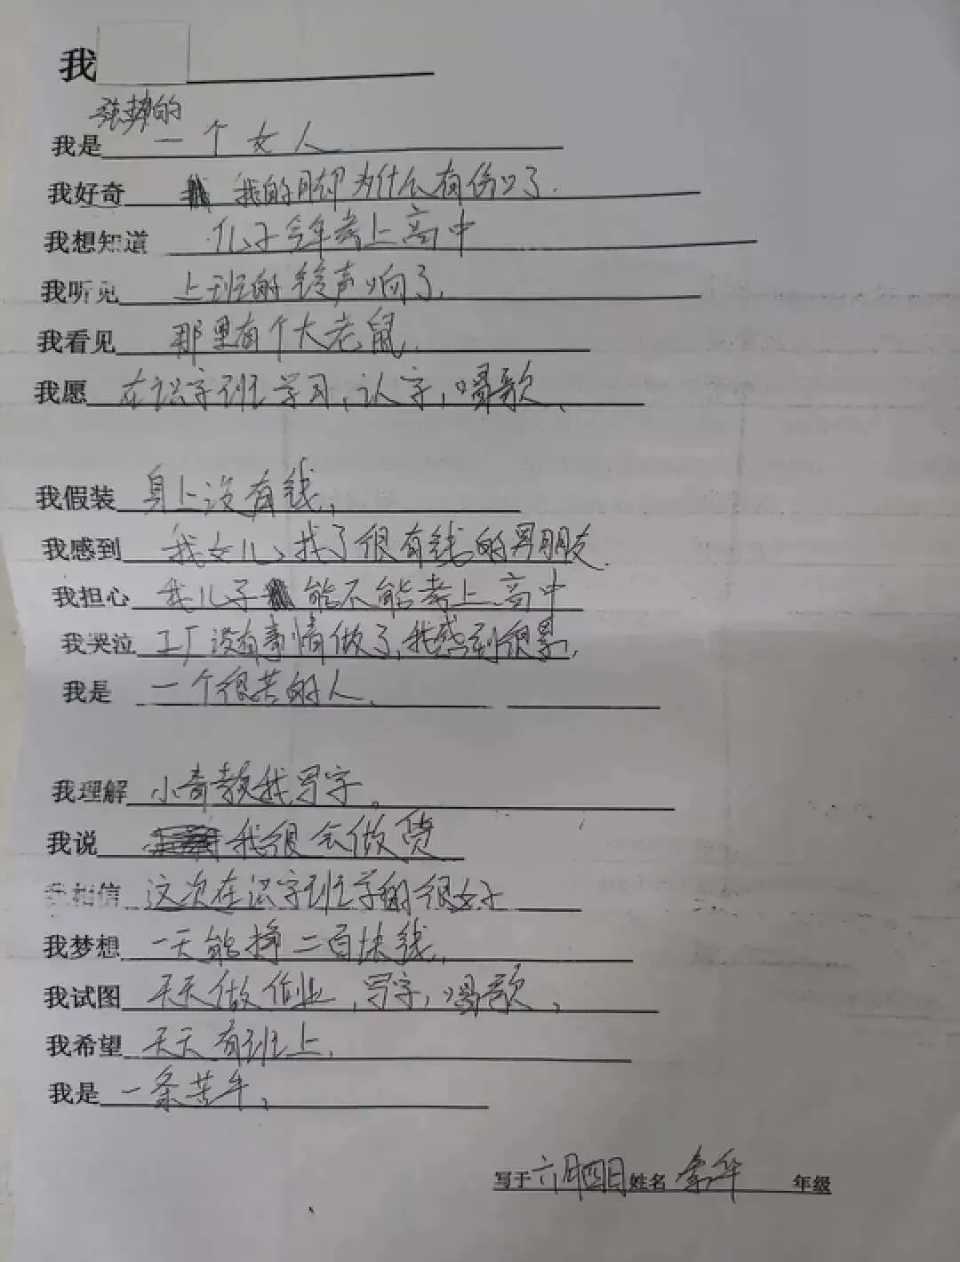 我
我是 一个女人
我好奇 我的脚为什么有伤口了.
我想知道 儿子今年考上高中
我听见 上班的铃声响了.
我看见 那里有个大老鼠.
我愿 在识字班学习,认字,唱歌、
我假装 身上没有钱,
我感到 我女儿、找了很有钱的男朋友.
我担心 我儿子能不能考上高中
我哭泣 工厂没有事情做了,我感到很累,
我是 一个很苦的人、
我理解 小奇教我写字。
我说 我很会做货
我相信 这次在识字班学的很好
我梦想 一天能挣二百块钱、
我试图 天天做作业,写字,唱歌、
我希望 天天有班上.
我是 一条苦牛、
写于六月四日姓名 华 年级